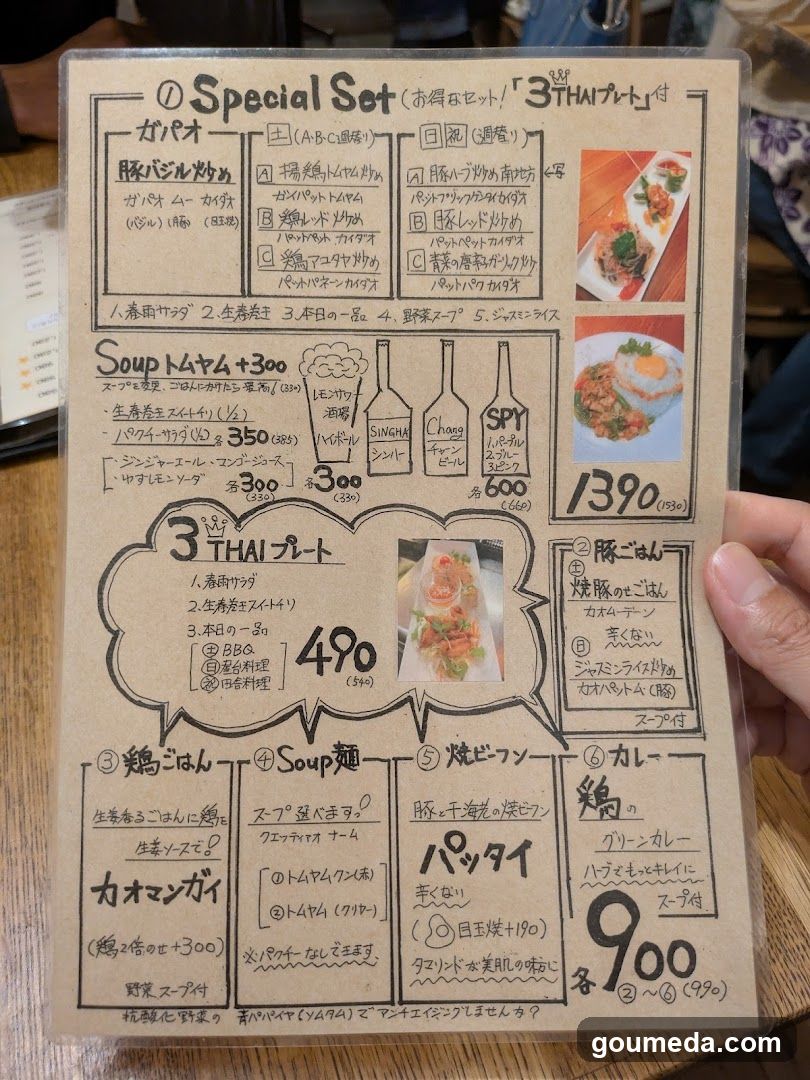 ① Special Set (お得なセット!「3THAIプレート」付
ガパオ
豚バジル炒め
ガパオ ムー カイダオ
(バジル) (豚) (目玉焼)
土 (A・B・C週替り)
A 揚鶏トムヤム炒め
ガイパット トムヤム
B 鶏レッド炒め
パットペット カイダオ
C 鶏アユタヤ炒め
パットパネーン カイダオ
日 祝 (週替り)
A 豚ハーブ炒め 南地方 ←写
カイダオ
B 豚レッド炒め
パットペット カイダオ
C 青菜の唐辛子ガーリック炒
パットパク カイダオ
1、春雨サラダ 2、生春巻き 3、本日の一品 4、野菜スープ 5、ジャスミンライス
Soup トムヤム +300
スープを変更、ごはんにかけたら最高! (330)
・生春巻 スイートチリ (1/2)
・パクチーサラダ (1/2) 各 350 (385)
・ジンジャーエール ・マンゴージュース
・ゆずレモンソーダ 各 300
(330)
レモンサワー
酒場
ハイボール
各 300
(330)
SINGHA
シンハー
Chang
チャーン
ビール
SPY
1、パープル
2、ブルー
3、ピンク
各 600
(660)
1390 (1530)
3 THAI プレート
1、春雨サラダ
2、生春巻 スイートチリ
3、本日の一品
土 BBQ
日 屋台料理
祝 田舎料理
490
(540)
② 豚ごはん
土
焼豚のせごはん
カオムーデーン
辛くない
日
ジャスミンライス炒め
カオパットム (豚)
スープ付
③ 鶏ごはん
生姜香るごはんに鶏を
生姜ソースで!
カオマンガイ
(鶏2倍のせ +300)
野菜スープ付
④ Soup麺
スープ選べますっ!
クエッティアオ ナーム
① トムヤムクン (赤)
② トムヤム (クリヤー)
※パクチーなしできます。
⑤ 焼ビーフン
豚と干海老の焼ビーフン
パッタイ
辛くない
(目玉焼+190)
タマリンドが美肌の味方に
⑥ カレー
鶏の
グリーンカレー
ハーブでもっとキレイに
スープ付
各 900
②〜⑥ (990)
抗酸化野菜の 青パパイヤ (ソムタム) でアンチエイジングしませんか?
goumeda.com